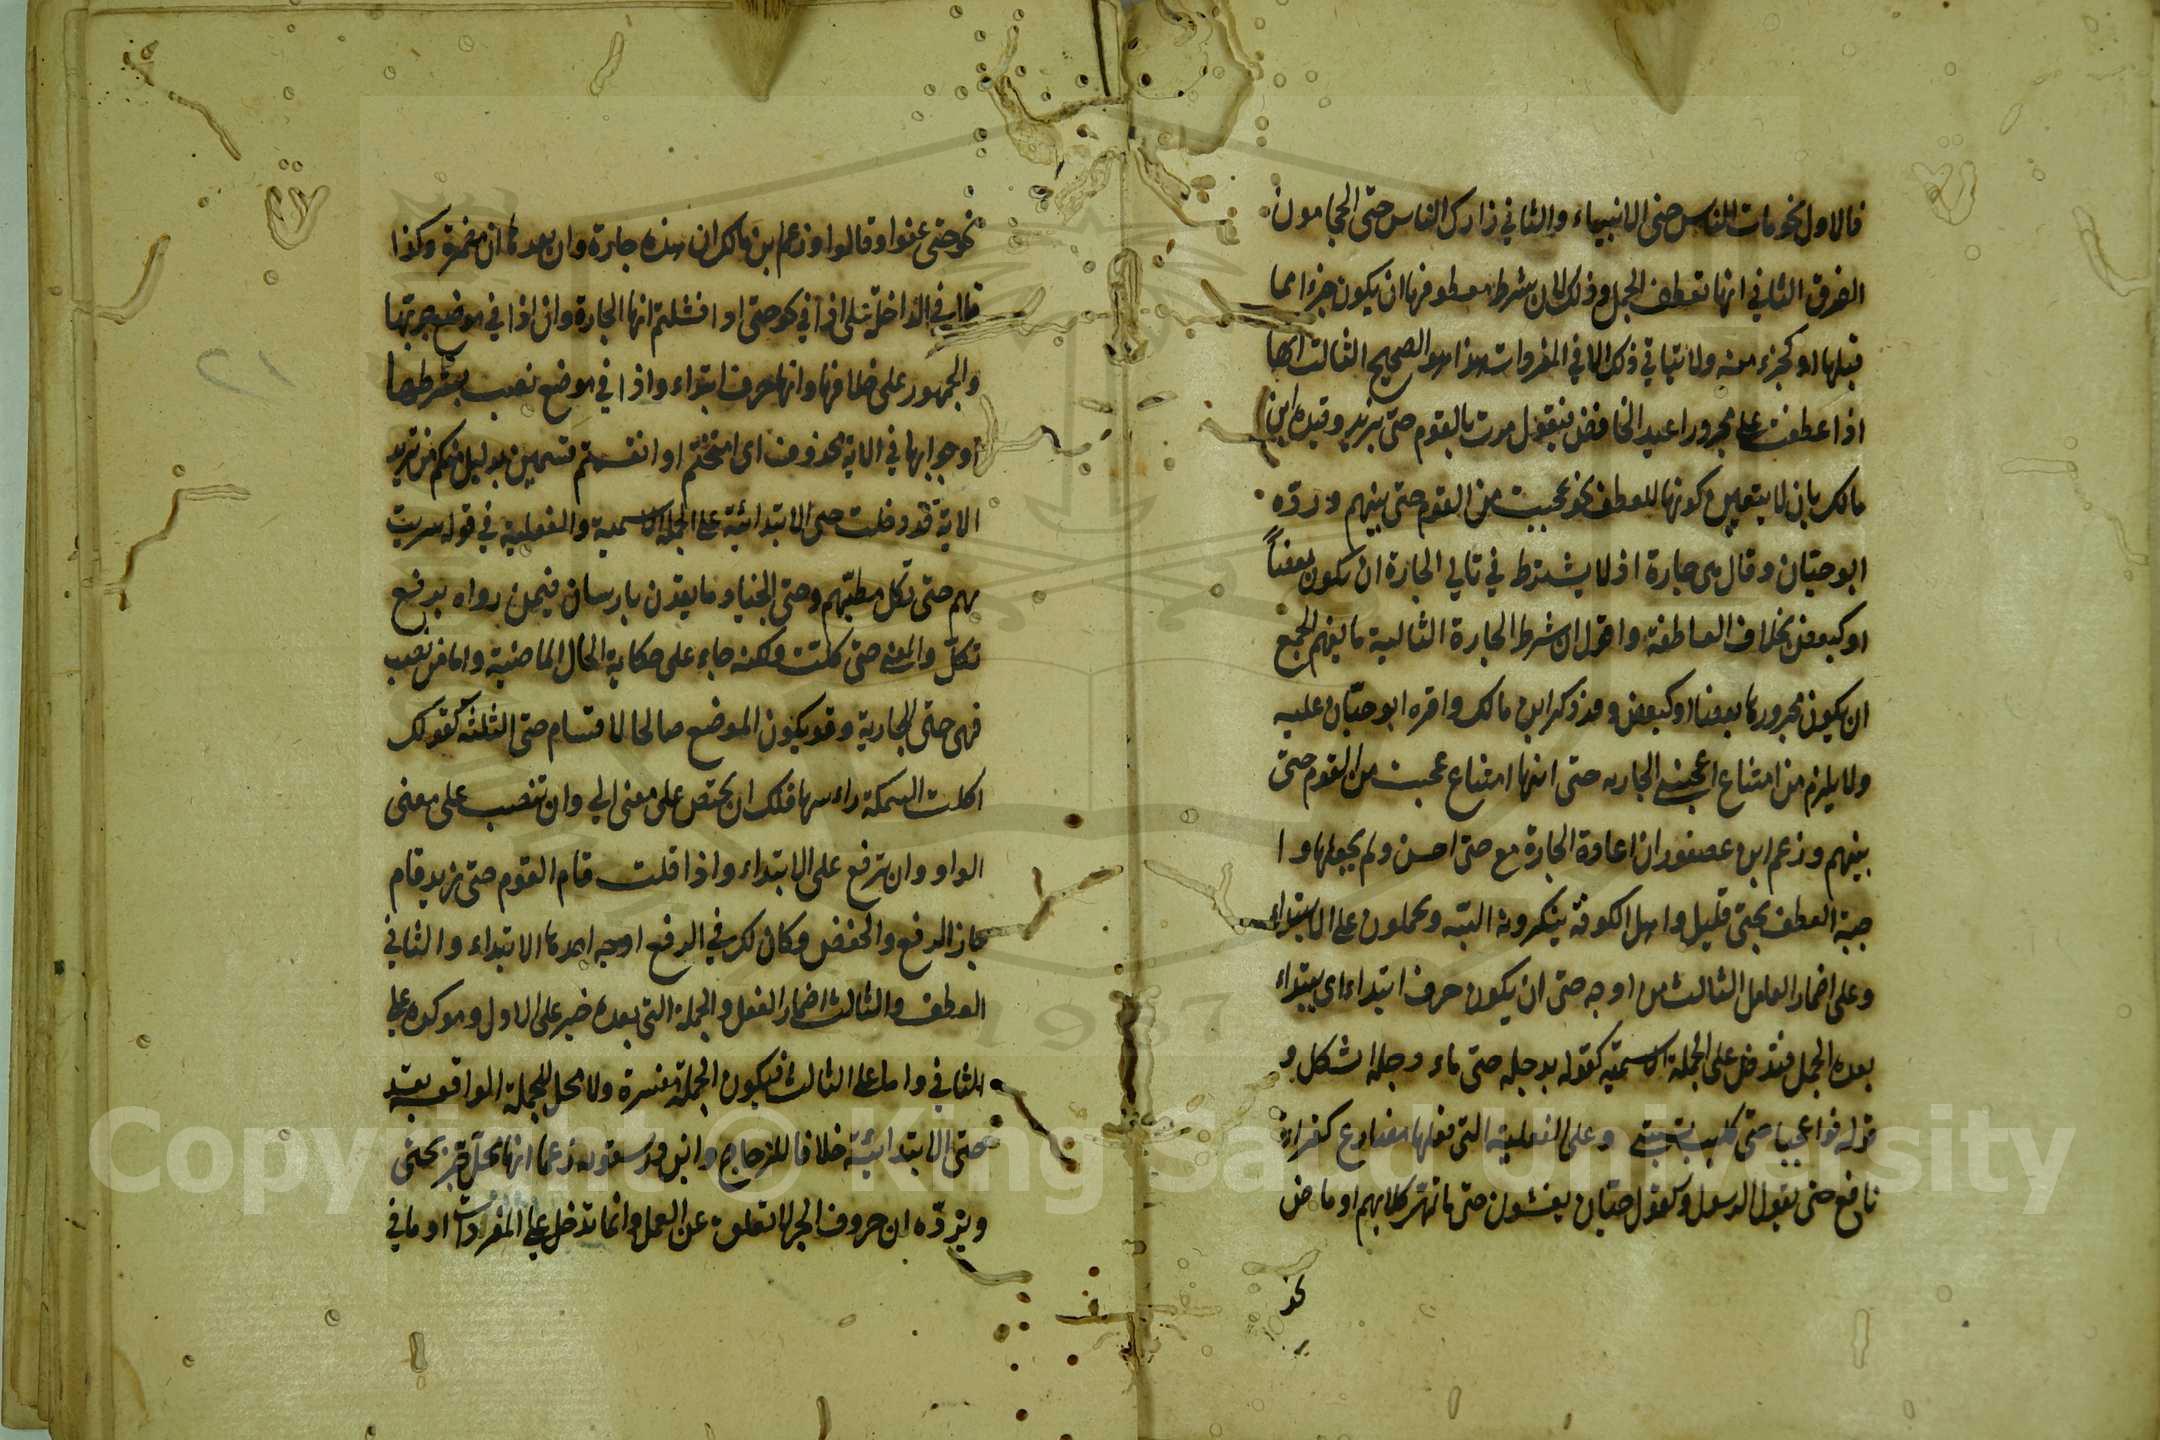 فالاول نحو مات الناس حتى الانبياء والثاني زارك الناس حتى الحجامون
الفرق الثاني انها تعطف الجمل وذلك لان شرط معطوفها ان يكون جزءا مما
قبلها او كجزء منه ولا يتاتي ذلك الا في المفردات هذا هو الصحيح الثالث انها
اذا عطفت على مجرور اعيد الخافض فيقول مررت بالقوم حتى بزيد وقيده ابن
مالك بان لا يتعين كونها للعطف نحو عجبت من القوم حتى بينهم ورده
ابو حيان وقال هي جارة اذ لا يشترط في تالي الجارة ان يكون بعضاً
او كبعض بخلاف العاطفة واقول ان شرط الجارة التالية ما يفهم الجمع
ان يكون مجرورها بعضا او كبعض وقد ذكر ابن مالك واقره ابو حيان عليه
ولا يلزم من امتناع اعجبني الجاريه حتى ابنها امتناع عجبت من القوم حتى
بينهم وزعم ابن عصفور ان اعادة الجارة مع حتى احسن ولم يجعلها وا
جبة العطف بحتى قليل واهل الكوفة ينكرونه البتة ويحملون على الابتداء
وعلى اضمار العامل الثالث من اوجه حتى ان يكون حرف ابتداء اي يبتداء
بعده الجمل فتدخل على الجملة الاسمية كقوله بدجله حتى ماء دجله اشكل و
قوله فواعجبا حتى كليب تسبني وعلى الفعلية التي فعلها مضارع كقراءة
نافع حتى يقول الرسول وكقول حيان يغشون حتى ما تهر كلابهم او ماض
نحو
نحو حتى عفوا وقالوا وزعم ابن مالك ان هذه جارة وان بعدها ان مضمرة وكذا
قال في الداخلة على اذا في نحو حتى اذا فشلتم انها الجارة وان اذا في موضع جر بها
والجمهور على خلافها وانها حرف ابتداء واذا في موضع نصب بشرطها
او جوابها في الاية محذوف اي امتحنتم او انقسمتم قسمين بدليل منكم من يريد
الاية قد دخلت حتى الابتدائية على الجملة الاسمية والفعلية في قوله سريت
بهم حتى تكل مطيهم وحتى الجياد ما يقدن بارسان فيمن رواه برفع
تكل والمعنى حتى كلت ولكنه جاء على حكاية الحال الماضية واما من نصب
فهي حتى الجارية وقد يكون الموضع صالحا لاقسام حتى الثلثة كقولك
اكلت السمكة حتى راسها فلك ان تخفض على معنى الى وان تنصب على معنى
الواو وان ترفع على الابتداء واذا قلت قام القوم حتى زيد قام
جاز الرفع والخفض وكان لك في الرفع اوجه احدها الابتداء والثاني
العطف والثالث اضمار الفعل والجملة التي بعده خبر على الاول وموكده على
الثاني واما على الثالث فتكون الجملة مفسرة ولا محل للجملة الواقعة بعد
حتى الابتدائية خلافا للزجاج وابن درستويه زعما انها في محل جر بحتى
ويرده ان حروف الجر لا تعلق عن العمل وانما تدخل على المفردات او ما في
Copyright © King Saud University
1957